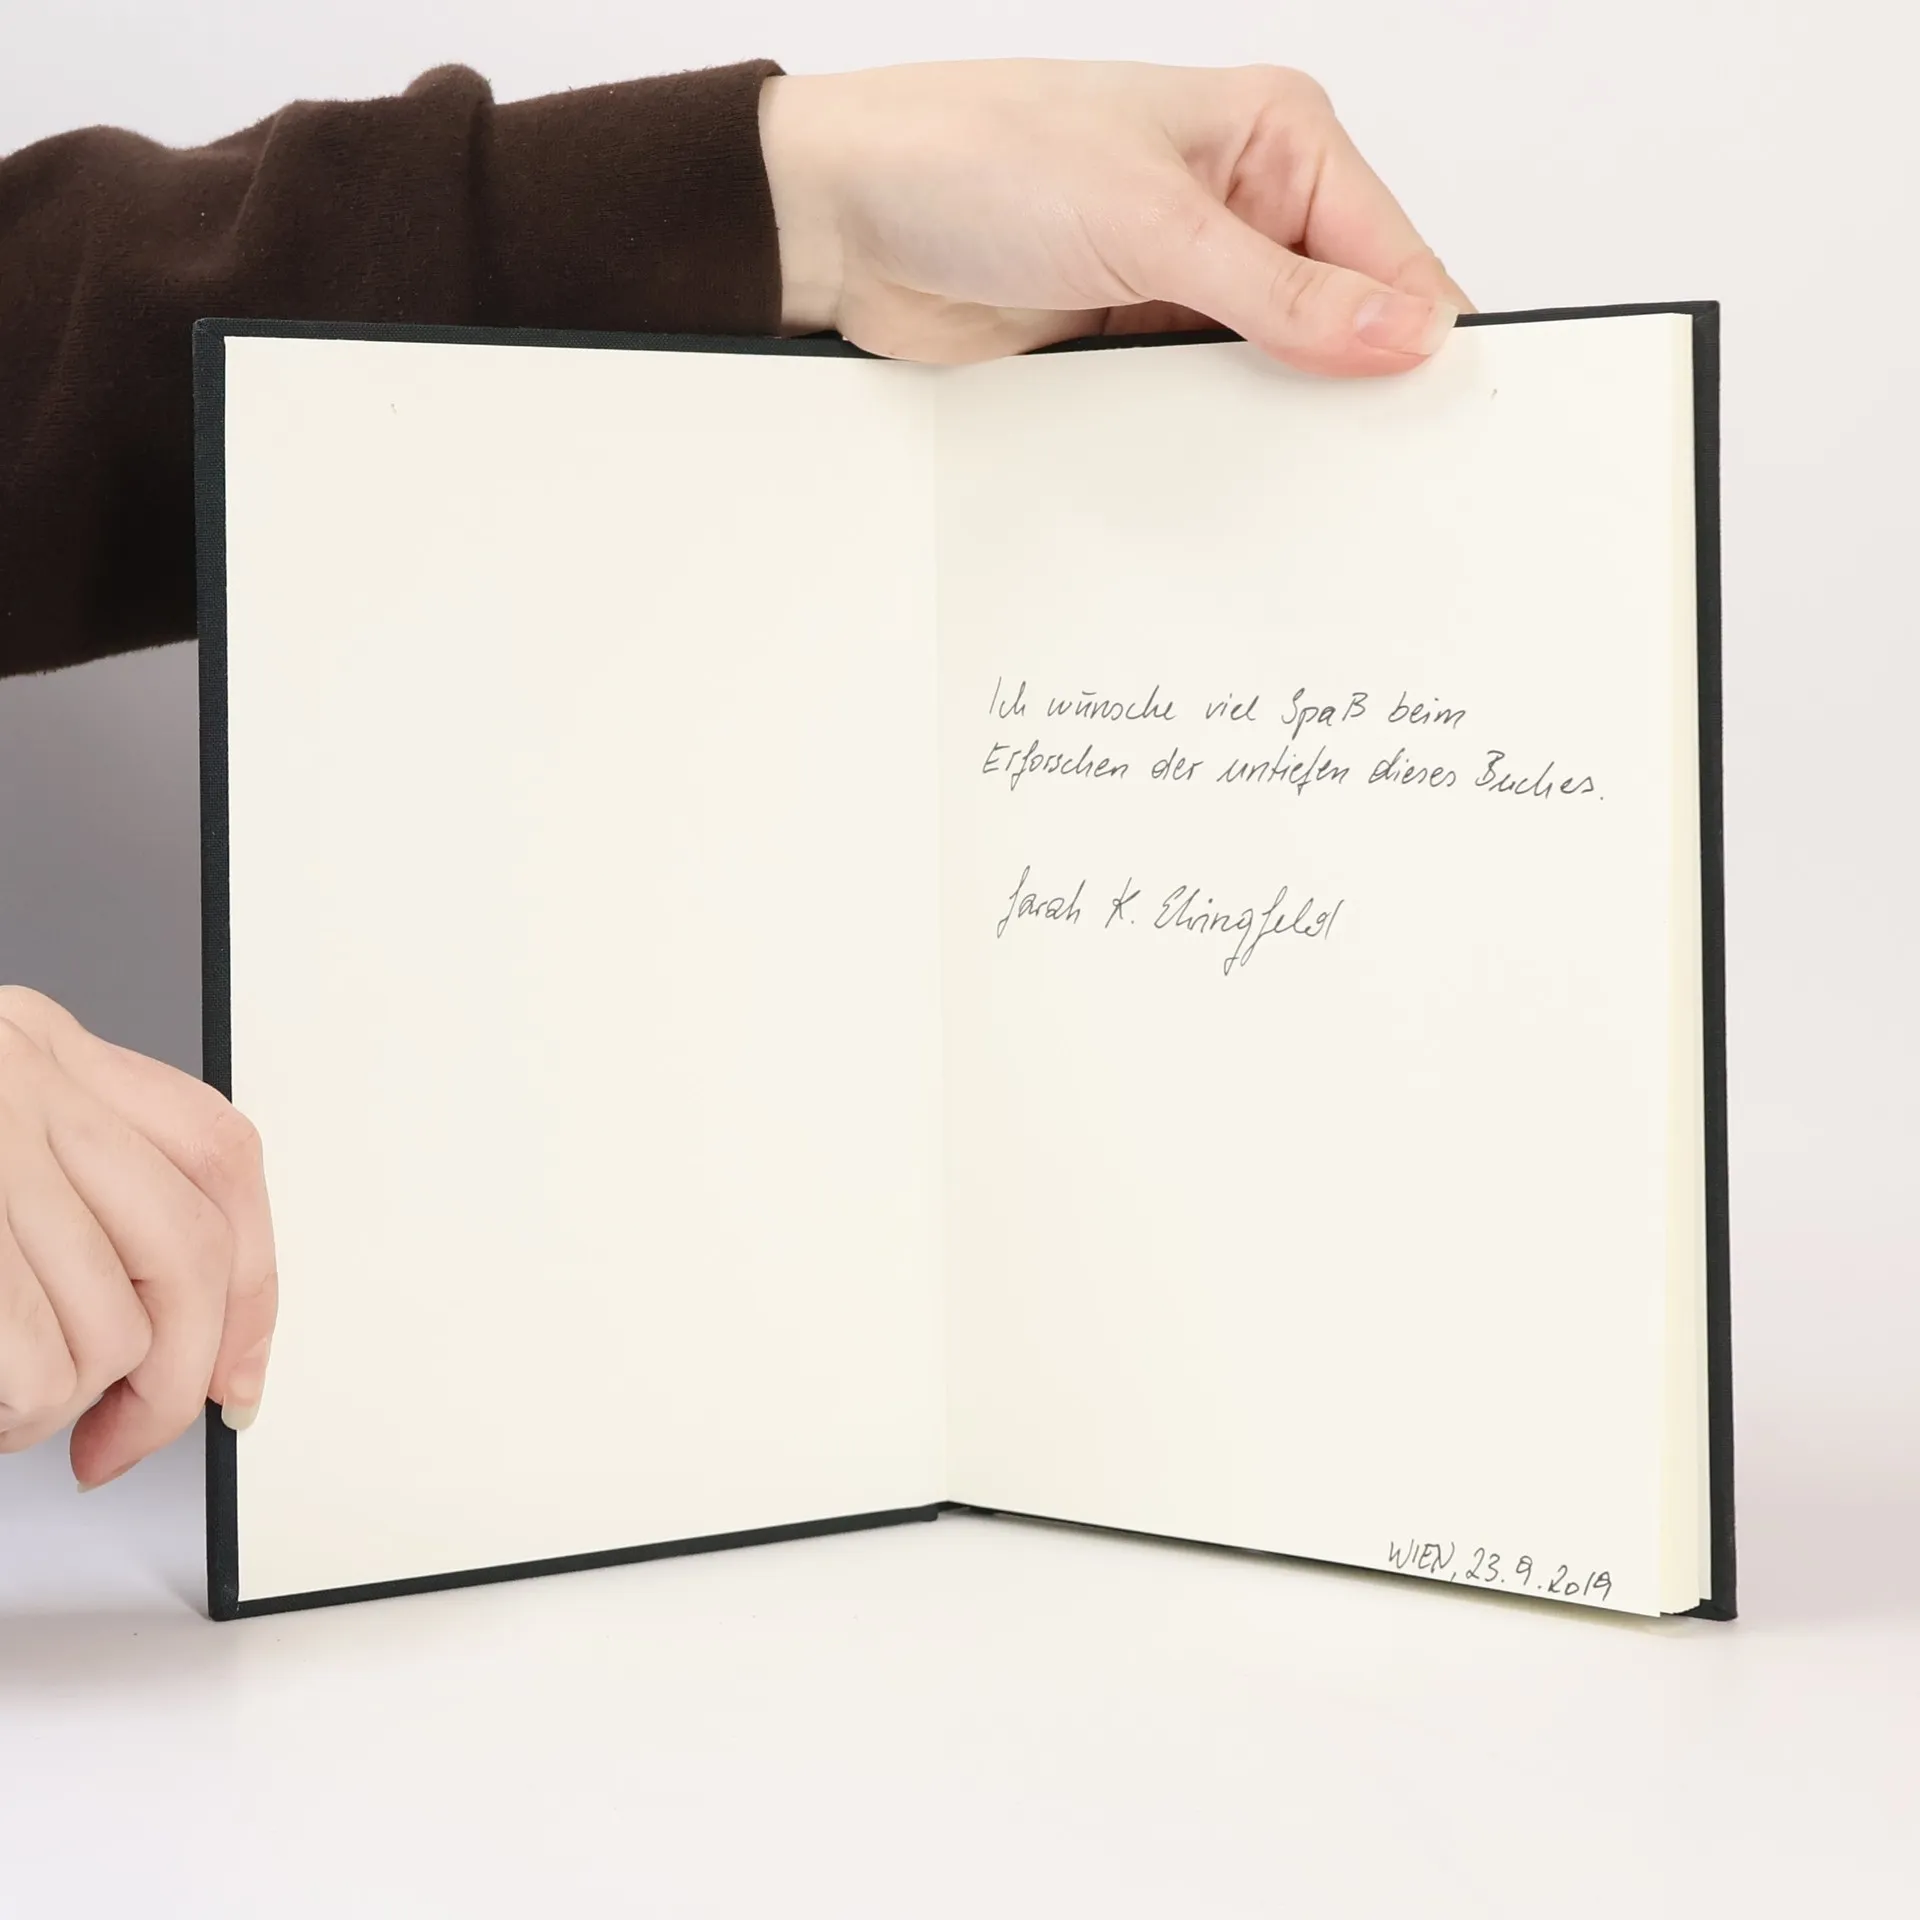 Ich wünsche viel Spaß beim
Erforschen der untiefen dieses Buches.
Sarah K.
WIEN, 23.9.2019